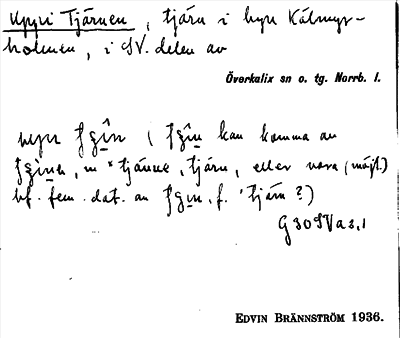 Uppi Tjärnen, tjärn i byn Kälmyr-
holmen, i SV. delen av
Överkalix sn o. tg. Norrb. l.
( kan komma av
, m *tjänne, tjärn, eller vara (möjl.)
bf. fem. dat. av f. 'tjärn?)
G30SVa2,1
EDVIN BRÄNNSTRÖM 1936.